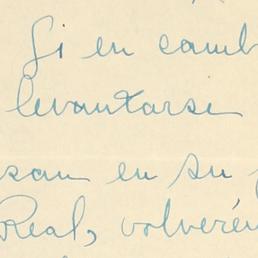 Si en camb
levantarse
san en su
Real, volveré